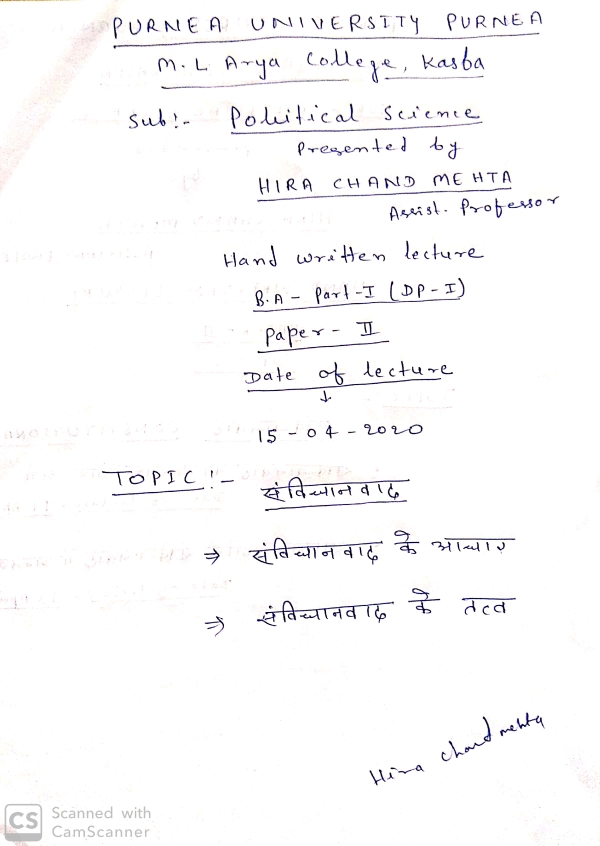 PURNEA UNIVERSITY PURNEA
M.L Arya College, Kasba
Sub:- Political Science
Presented by
HIRA CHAND MEHTA
Assist. Professor
Hand written lecture
B.A - Part-I (DP-I)
Paper - II
Date of lecture
↓
15-04-2020
TOPIC:- संविधानवाद
⇒ संविधानवाद के आधार
⇒ संविधानवाद के तत्व
Hira chand mehta
CS Scanned with
CamScanner